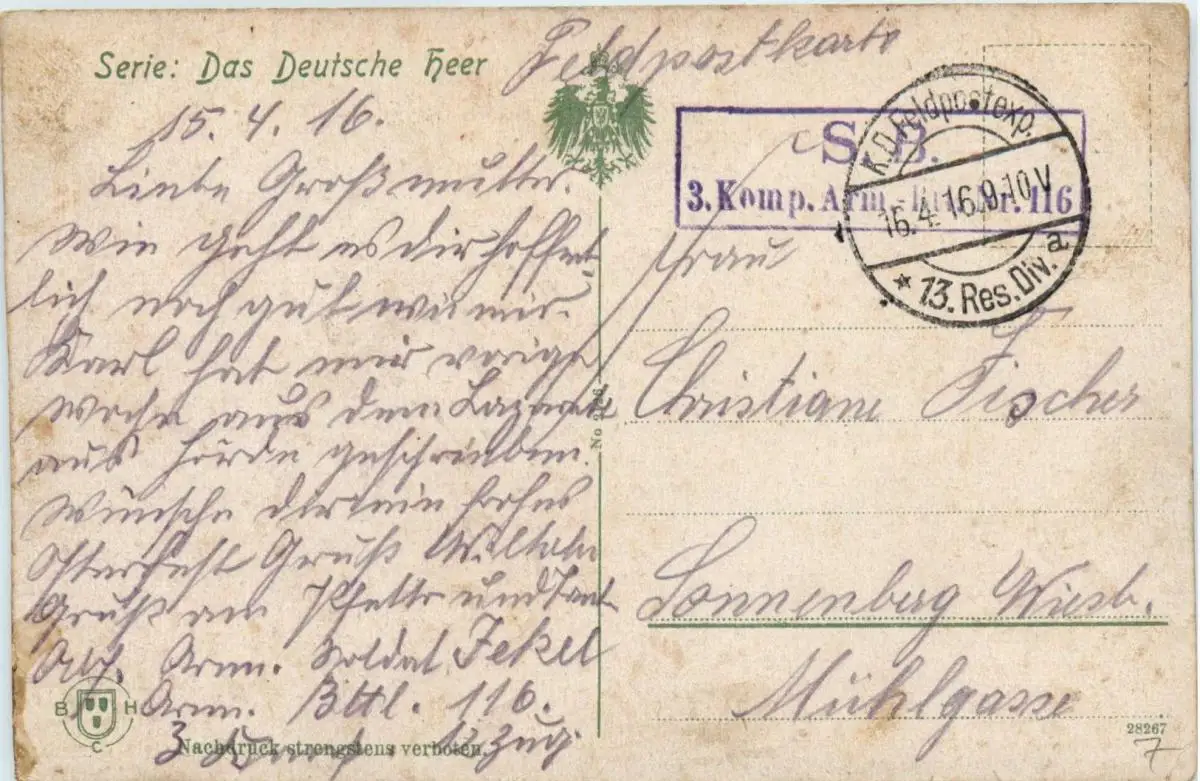 Serie: Das Deutsche Heer
Feldpostkarte
15. 4. 16.
Liebe Großmutter.
Wie geht es dir hoffent
lich noch gut wie mir.
Karl hat mir vorige
Woche aus dem Lazarett
aus Hörde geschrieben.
Wünsche dir ein frohes
Osterfest Gruß
Gruß an und Tant
Abs. Arm. Soldat Jekel
Arm. Battl. 116.
3 Komp. Zug
S. B.
3. Komp. Arm.-Batl. Nr. 116
K.D. Feldpostexp.
16.4.16.9-10V
* 13. Res. Div. a
Frau
Christiane Fischer
Sonnenberg Wiesb.
Mühlgasse
B H
C
Nachdruck strengstens verboten.
28267
7